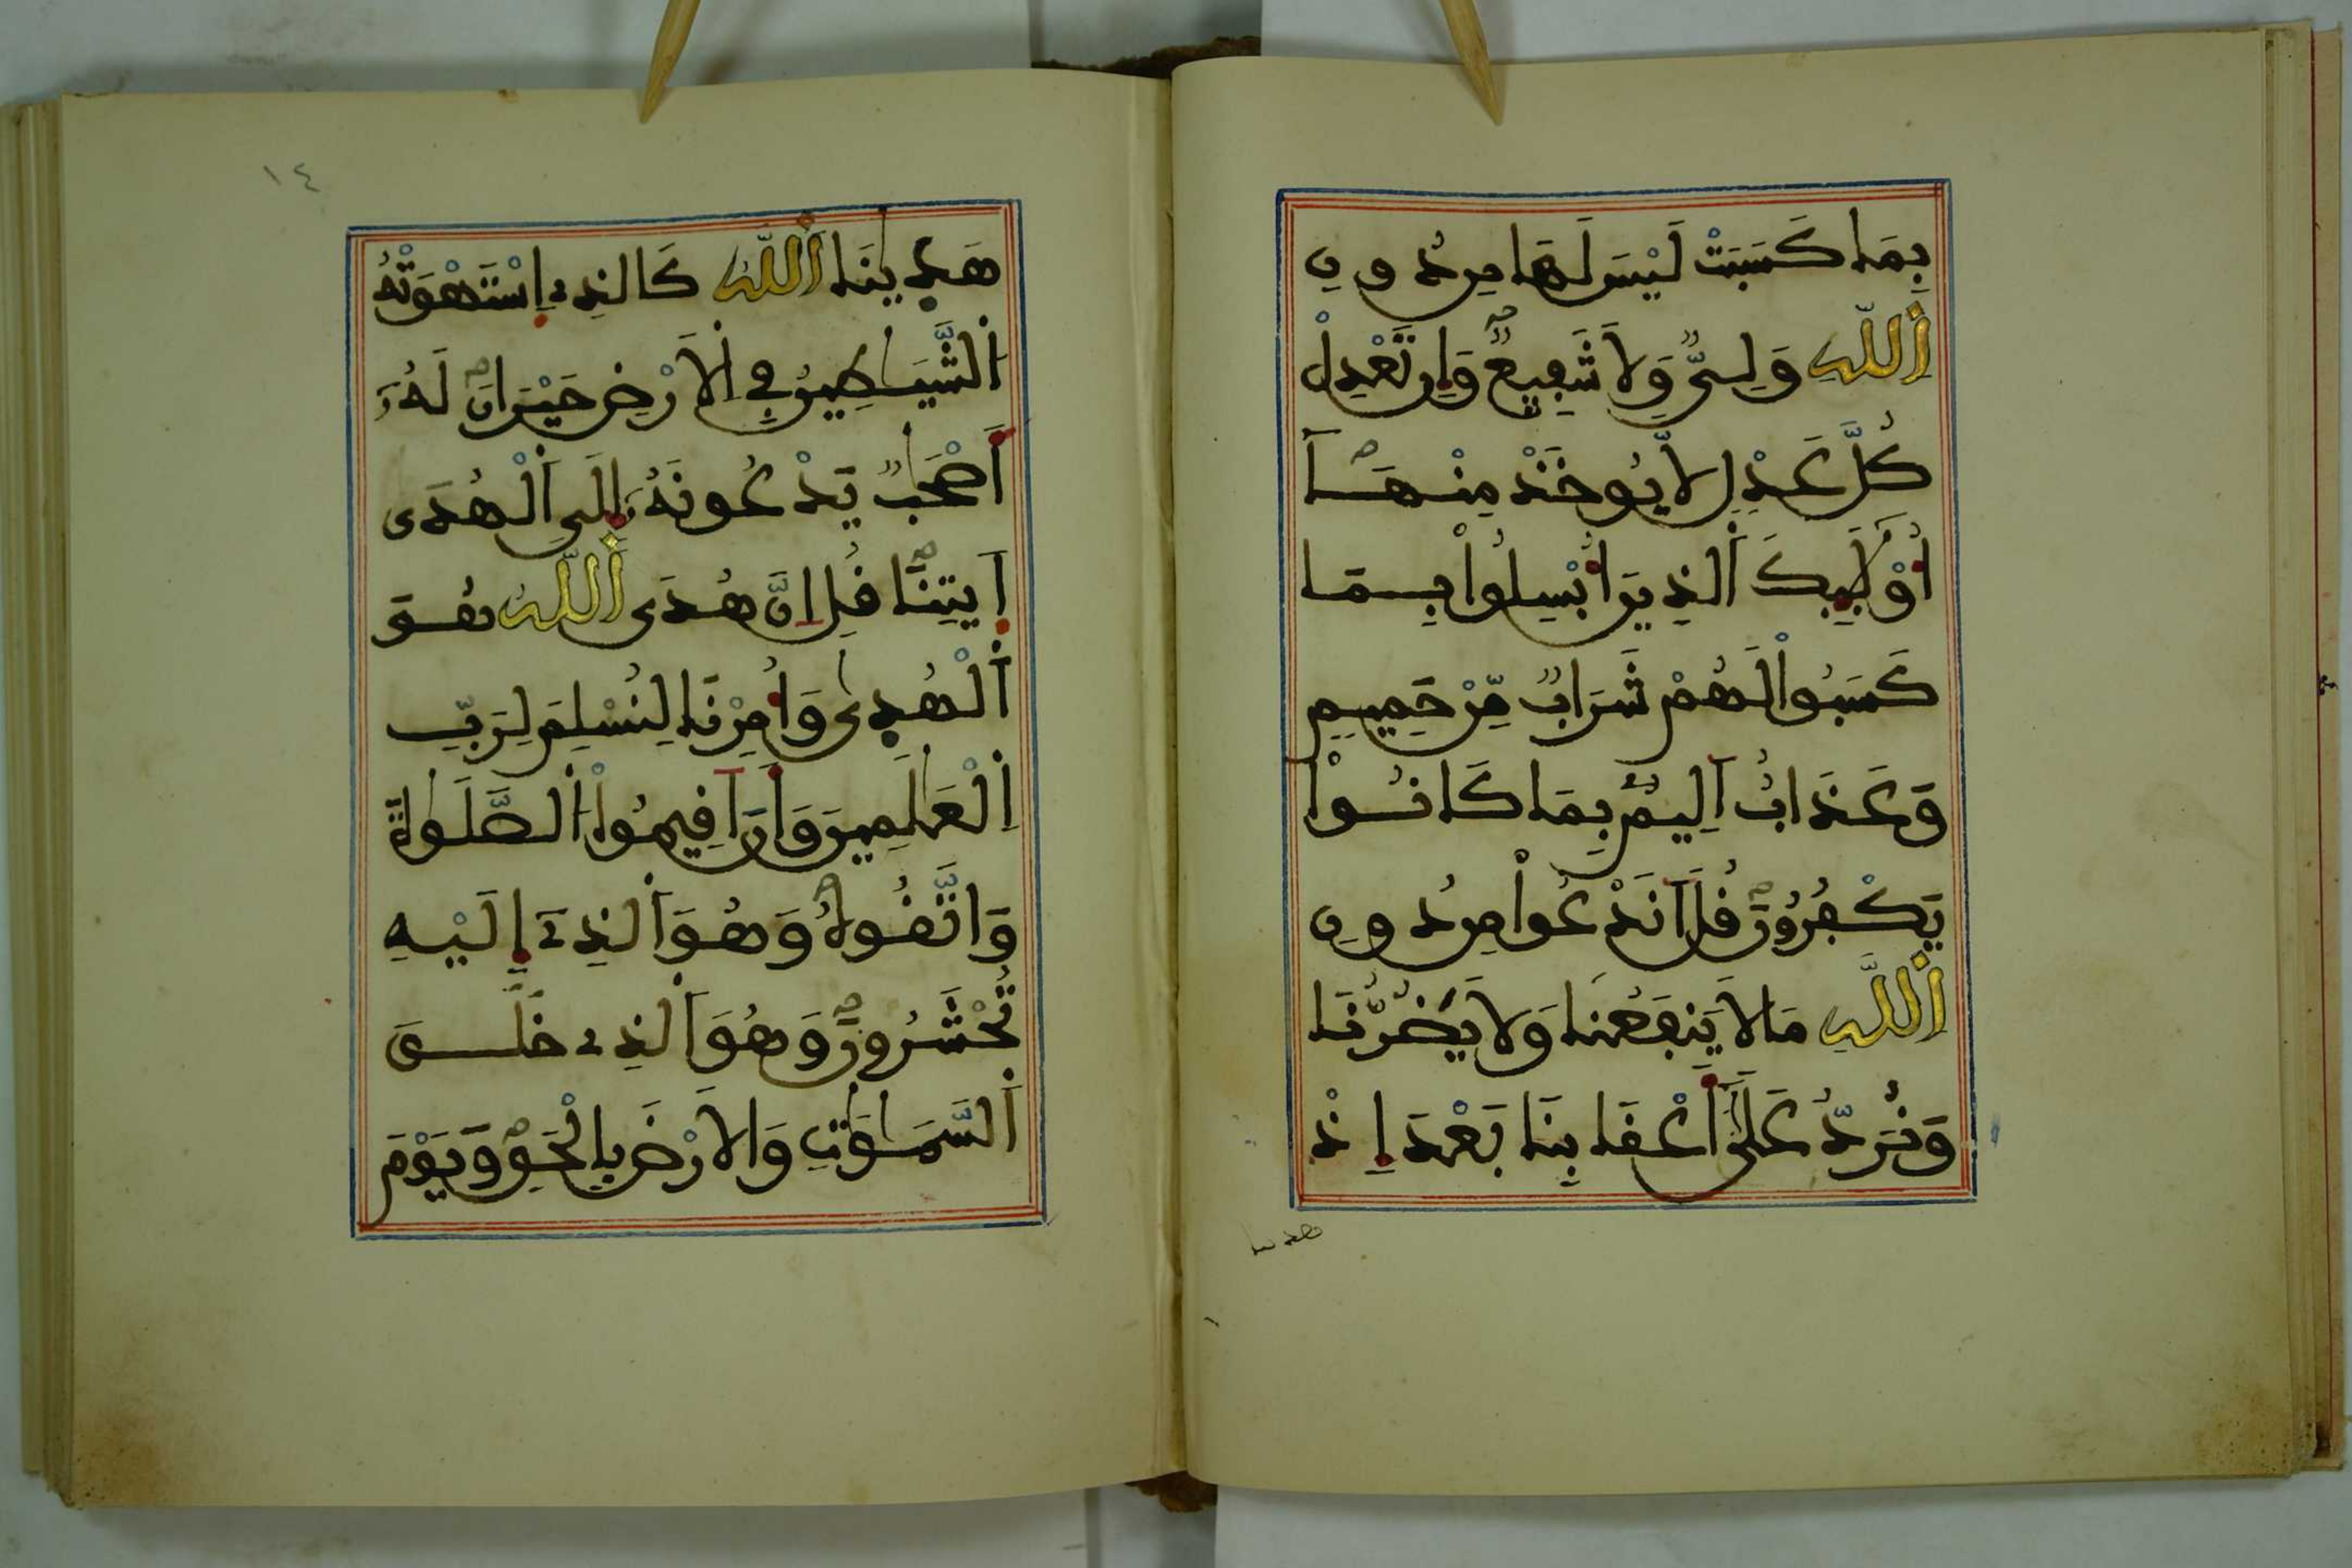 بِمَا كَسَبَتْ لَيْسَ لَهَا مِن دُونِ
اِ۬للَّهِ وَلِيٌّ وَلَا شَفِيعٌ وَإِن تَعْدِلْ
كُلَّ عَدْلٍ لَّا يُوخَذْ مِنْهَآ
أُوْلَٰٓئِكَ اَ۬لذِينَ أُبْسِلُواْ بِمَا
كَسَبُواْ لَهُمْ شَرَابٌ مِّنْ حَمِيمٍ
وَعَذَابٌ اَلِيمٌ بِمَا كَانُواْ
يَكْفُرُونَ قُلَ اَنَدْعُواْ مِن دُونِ
اِ۬للَّهِ مَا لَا يَنفَعُنَا وَلَا يَضُرُّنَا
وَنُرَدُّ عَلَىٰٓ أَعْقَابِنَا بَعْدَ إِذْ
هدىنا
١٤
هَدِىٰنَا اَ۬للَّهُ كَالذِے اِ۪سْتَهْوَتْهُ
اُ۬لشَّيَٰطِينُ فِے اِ۬لَارْضِ حَيْرَانَ لَهُۥٓ
أَصْحَٰبٌ يَدْعُونَهُۥٓ إِلَى اَ۬لْهُدَى
اَ۪يتِنَا قُلِ اِنَّ هُدَى اَ۬للَّهِ هُوَ
اَ۬لْهُدِىٰ وَأُمِرْنَا لِنُسْلِمَ لِرَبِّ
اِ۬لْعَٰلَمِينَ وَأَنَ اَقِيمُواْ اُ۬لصَّلَوٰةَ
وَاتَّقُوهُ وَهُوَ اَ۬لذِےٓ إِلَيْهِ
تُحْشَرُونَ وَهُوَ اَ۬لذِے خَلَقَ
اَ۬لسَّمَٰوَٰتِ وَالَارْضَ بِالْحَقِّ وَيَوْمَ